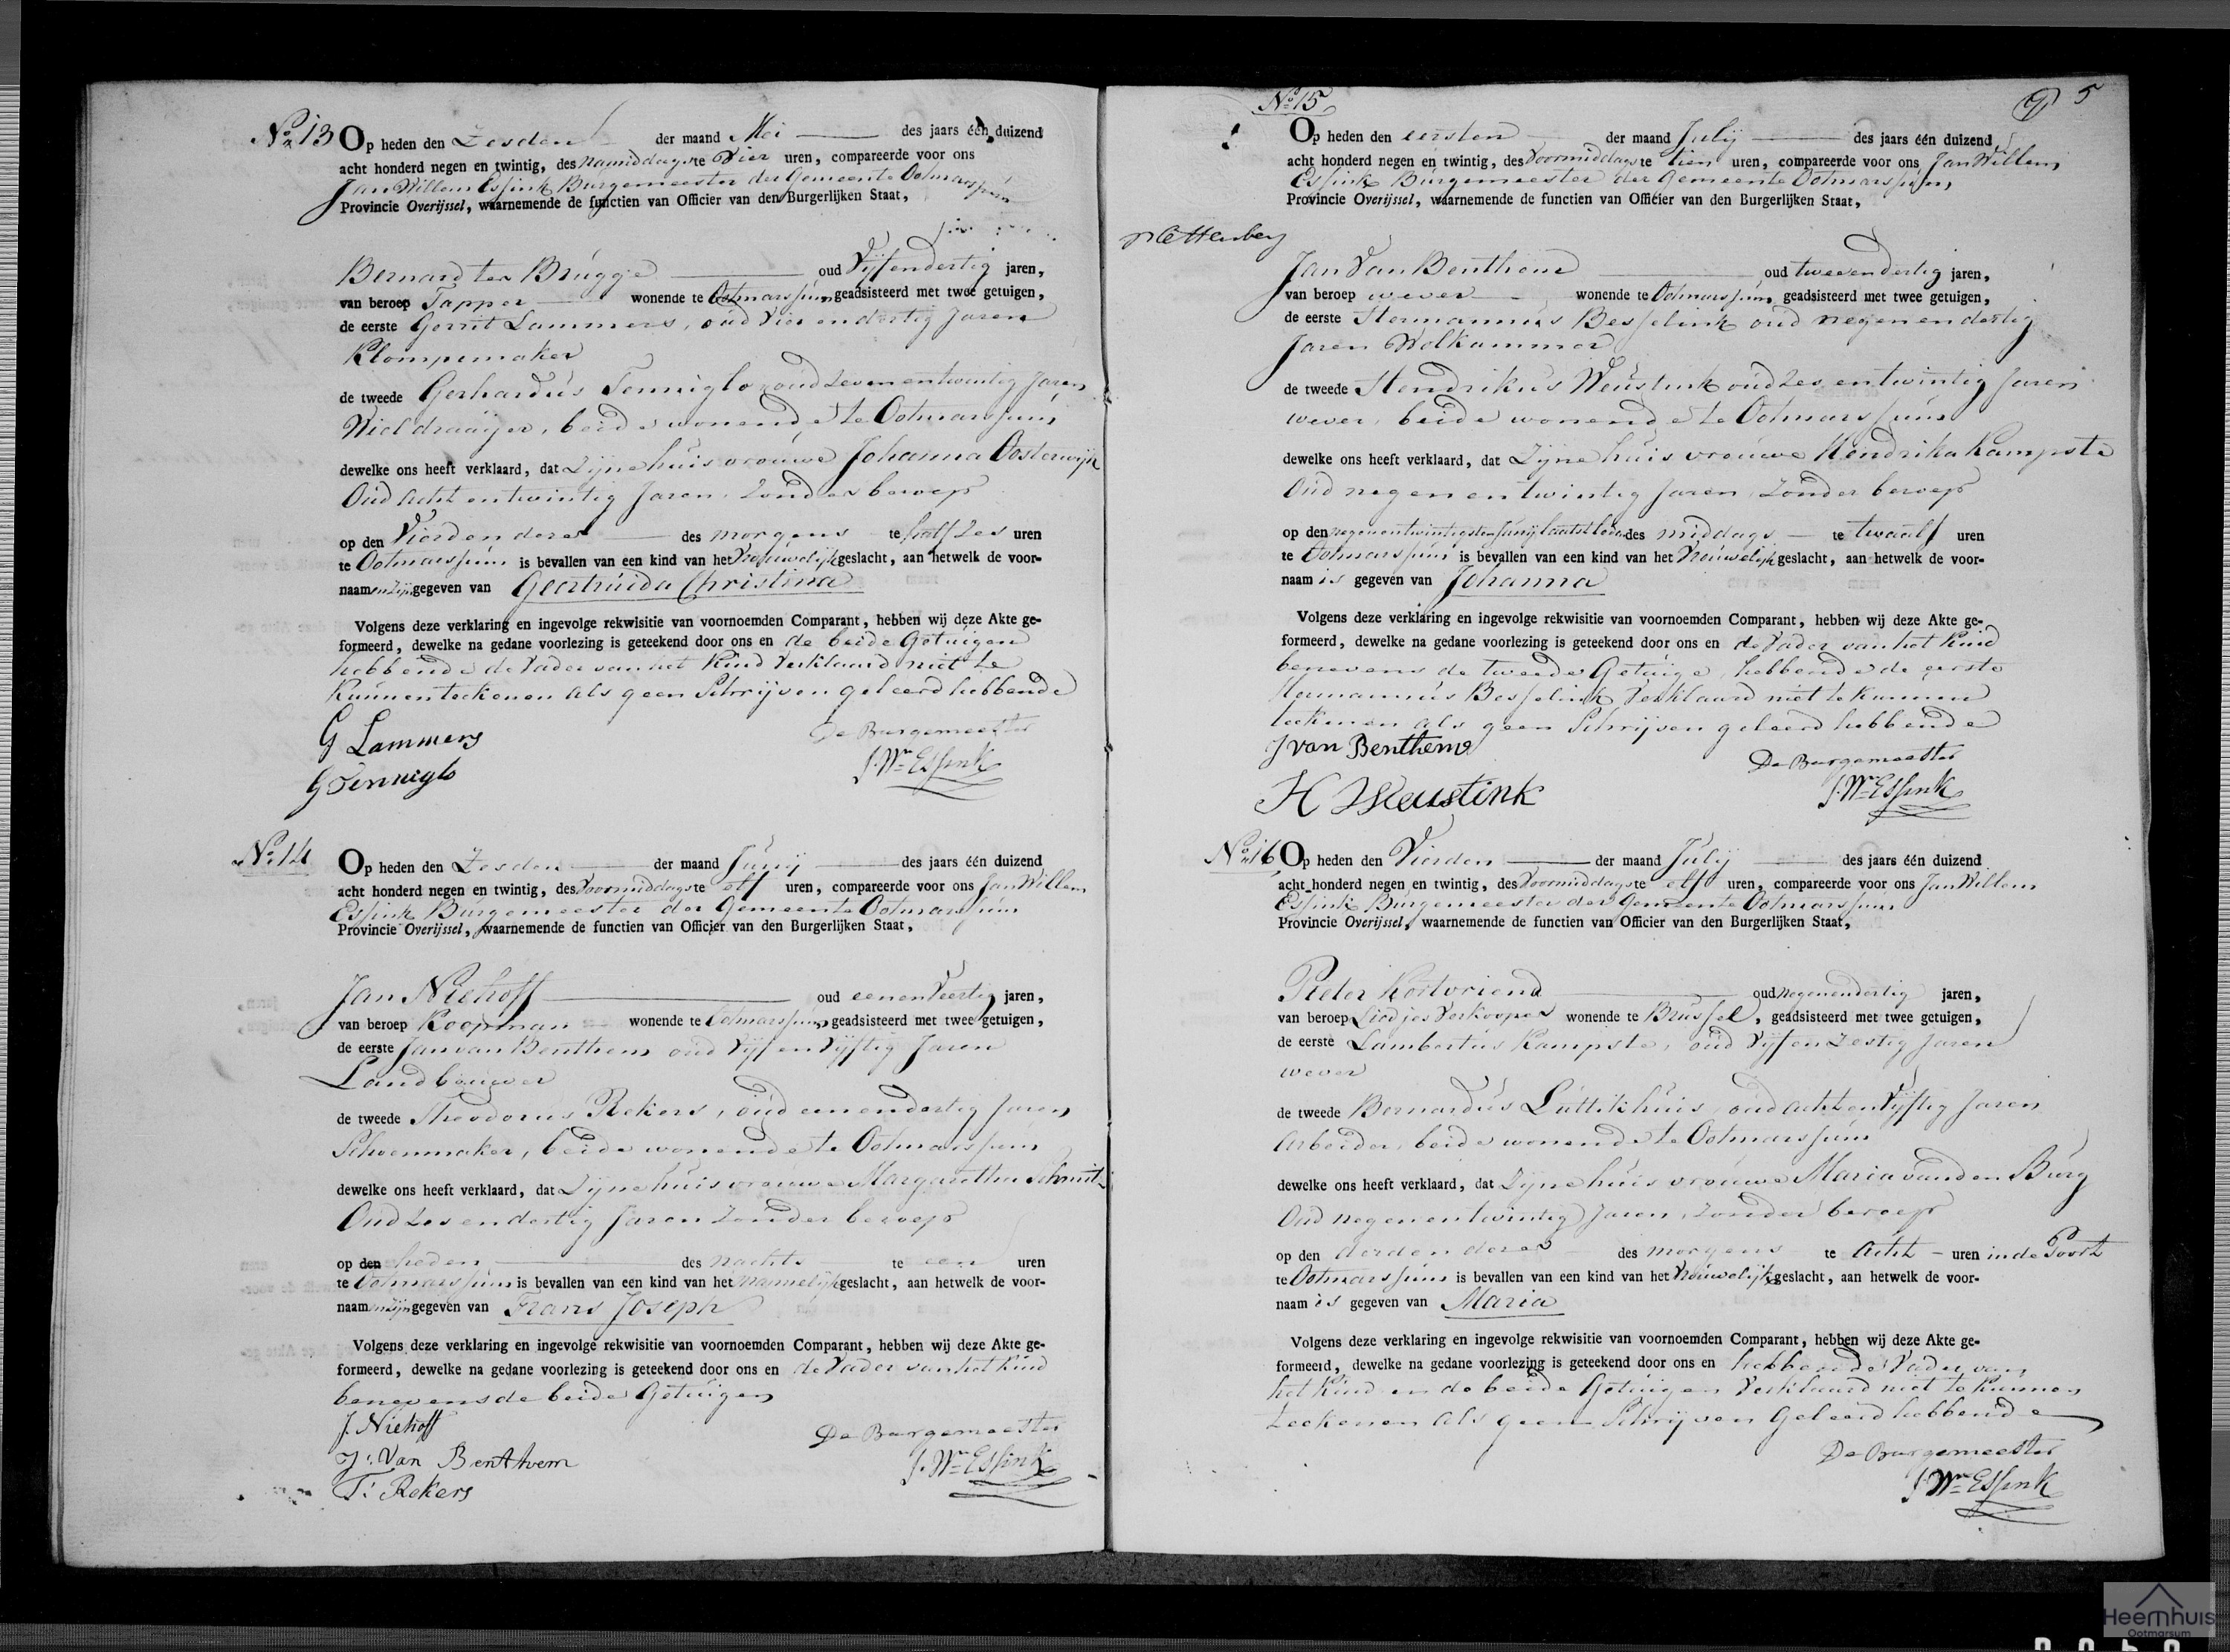 No 13 Op heden den Zesden der maand Mei des jaars één duizend
acht honderd negen en twintig, des namiddags te Vier uren, compareerde voor ons
Jan Willem Essink Burgemeester der Gemeente Ootmarssum
Provincie Overijssel, waarnemende de functien van Officier van den Burgerlijken Staat,
Bernard ter Brugge oud Vijfendertig jaren,
van beroep Tapper wonende te Ootmarssum geadsisteerd met twee getuigen,
de eerste Gerrit Lammers, oud Vier en dertig Jaren
Klompemaker
de tweede Gerhardus Tenniglo oud Zeven en twintig Jaren
Wieldraaijer, beide wonende te Ootmarssum
dewelke ons heeft verklaard, dat Zijne huisvrouwe Johanna Oosterwijk
Oud Acht en twintig Jaren, Zonder beroep
op den Vierden dezer des morgens te half Zes uren
te Ootmarssum is bevallen van een kind van het Vrouwelijk geslacht, aan hetwelk de voor-
naamen Zijn gegeven van Geertruida Christina
Volgens deze verklaring en ingevolge rekwisitie van voornoemden Comparant, hebben wij deze Akte ge-
formeerd, dewelke na gedane voorlezing is geteekend door ons en de beide Getuigen
hebbende de Vader van het Kind Verklaard niet te
Kunnen teekenen als geen Schrijven geleerd hebbende
G Lammers
De Burgemeester
G Tenniglo
J. Wm Essink
No 14 Op heden den Zesden der maand Junij des jaars één duizend
acht honderd negen en twintig, des Voormiddags te elf uren, compareerde voor ons Jan Willem
Essink Burgemeester der Gemeente Ootmarssum
Provincie Overijssel, waarnemende de functien van Officier van den Burgerlijken Staat,
Jan Niehoff oud eenenveertig jaren,
van beroep Koopman wonende te Ootmarssum geadsisteerd met twee getuigen,
de eerste Jan van Benthem oud Vijf en Vijftig Jaren
Landbouwer
de tweede Theodorus Rekers, oud een en dertig Jaren
Schoenmaker, beide wonende te Ootmarssum
dewelke ons heeft verklaard, dat Zijne huisvrouwe Margaretha Schmit
Oud Zes en dertig Jaren Zonder beroep
op den heden des nachts te een uren
te Ootmarssum is bevallen van een kind van het mannelijk geslacht, aan hetwelk de voor-
naamen Zijn gegeven van Frans Joseph
Volgens deze verklaring en ingevolge rekwisitie van voornoemden Comparant, hebben wij deze Akte ge-
formeerd, dewelke na gedane voorlezing is geteekend door ons en de Vader van het Kind
benevens de beide Getuigen
J. Niehoff
De Burgemeester
J: Van Benthem
J. Wm Essink
T: Rekers
No 15
5
Op heden den eersten der maand Julij des jaars één duizend
acht honderd negen en twintig, des Voormiddags te tien uren, compareerde voor ons Jan Willem
Essink Burgemeester der Gemeente Ootmarssum
Provincie Overijssel, waarnemende de functien van Officier van den Burgerlijken Staat,
Jan Van Benthem oud tweeendertig jaren,
van beroep wever wonende te Ootmarssum geadsisteerd met twee getuigen,
de eerste Hermannus Besselink oud negen en dertig
Jaren Wolkammer
de tweede Hendrikus Weustink oud Zes en twintig Jaren
wever, beide wonende te Ootmarssum
dewelke ons heeft verklaard, dat Zijne huisvrouwe Hendrika Kampste
Oud negen en twintig Jaren Zonder beroep
op den negenentwintigsten Junij laatstleden des middags te twaalf uren
te Ootmarssum is bevallen van een kind van het Vrouwelijk geslacht, aan hetwelk de voor-
naam is gegeven van Johanna
Volgens deze verklaring en ingevolge rekwisitie van voornoemden Comparant, hebben wij deze Akte ge-
formeerd, dewelke na gedane voorlezing is geteekend door ons en de Vader van het Kind
benevens de tweede Getuige, hebbende de eerste
Hermannus Besselink Verklaard niet te Kunnen
teekenen als geen Schrijven geleerd hebbende
J van Benthem
De Burgemeester
H Weustink
J. Wm Essink
No 16 Op heden den Vierden der maand Julij des jaars één duizend
acht honderd negen en twintig, des Voormiddags te elf uren, compareerde voor ons Jan Willem
Essink Burgemeester der Gemeente Ootmarssum
Provincie Overijssel, waarnemende de functien van Officier van den Burgerlijken Staat,
Pieter Kortvriend oud Negenendertig jaren,
van beroep Liedjes Verkooper wonende te Brussel, geadsisteerd met twee getuigen,
de eerste Lambertus Kampste, oud Vijf en Zestig Jaren
wever
de tweede Bernardus Luttikhuis, oud Acht en Vijftig Jaren
Arbeider, beide wonende te Ootmarssum
dewelke ons heeft verklaard, dat Zijne huisvrouwe Maria van den Burg
Oud negen en twintig Jaren, Zonder beroep
op den derden dezer des morgens te Acht uren in de Poort
te Ootmarssum is bevallen van een kind van het Vrouwelijk geslacht, aan hetwelk de voor-
naam is gegeven van Maria
Volgens deze verklaring en ingevolge rekwisitie van voornoemden Comparant, hebben wij deze Akte ge-
formeerd, dewelke na gedane voorlezing is geteekend door ons en hebbende de Vader van
het Kind en de beide Getuigen Verklaard niet te Kunnen
teekenen als geen Schrijven Geleerd hebbende
De Burgemeester
J. Wm Essink
Heemhuis
Ootmarsum